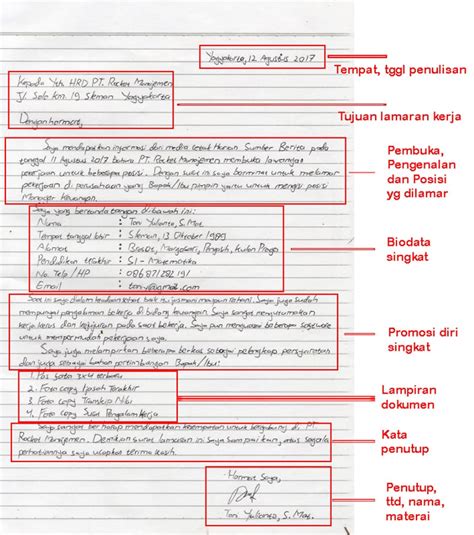 Yogyakarta, 12 Agustus 2017
Tempat, tggl penulisan
Kepada Yth HRD PT. Rocket Manajemen
Jl. Solo km. 19 Sleman Yogyakarta
Tujuan lamaran kerja
Dengan hormat,
Saya mendapatkan informasi dari media cetak Harian Sumber Berita pada
tanggal 11 Agustus 2017 bahwa PT. Rocket Manajemen membuka lowongan
pekerjaan untuk beberapa posisi. Dengan surat ini saya berminat untuk melamar
pekerjaan di perusahaan yang Bapak/Ibu pimpin yaitu untuk mengisi posisi
Manager Keuangan.
Pembuka,
Pengenalan
dan Posisi
yg dilamar
Saya yang bertanda tangan di bawah ini:
Nama : Toni Yulianto, S. Mat.
Tempat tanggal lahir : Sleman, 13 Oktober 1989
Alamat : Margosari, Pengasih, Kulon Progo
Pendidikan terakhir : S1 - Matematika
No. Telp / HP :
Email :
Biodata
singkat
Saat ini saya dalam keadaan sehat baik jasmani maupun rohani. Saya juga sudah
mempunyai pengalaman bekerja di bidang keuangan. Saya sangat mengutamakan
kerja keras dan kejujuran pada saat bekerja. Saya pun menguasai beberapa software
untuk mempermudah pekerjaan saya.
Saya juga melampirkan beberapa berkas sebagai pelengkap persyaratan
dan juga sebagai bahan pertimbangan Bapak/Ibu:
Promosi diri
singkat
1. Pas foto 3x4 terbaru
2. Foto copy Ijasah Terakhir
3. Foto copy Transkip Nilai
4. Foto copy Surat Pengalaman Kerja
Lampiran
dokumen
Saya sangat berharap mendapatkan kesempatan untuk bergabung di PT.
Rocket Manajemen. Demikian surat lamaran ini saya sampaikan, atas segala
perhatiannya saya ucapkan terima kasih.
Kata
penutup
Hormat Saya,
Toni Yulianto, S. Mat.
Penutup,
ttd, nama,
materai